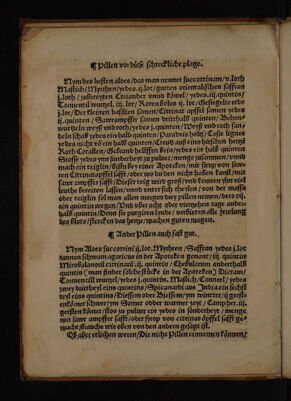 ¶ Pillen vor diese schreckliche plage.
Nym des besten aloes/das man nennet succotrinum/v.loth
Mastich/Myrrhen/yedes.ij.lot/gutten orientalischen saffran
j.loth/zubereyten Coriander vnd Römel/yedes.iij.quintin/
Tormentil wurtzel.iij.lot/Rotenbolus ij.lot/Gesigelte erde
j.lot/Der kleinen basilien samen/Citrinat öpffel samen yedes
ij.quintin/Sawrampffer samen drithalb quintin/Behen/
wurtzeln weyß vnd roth/yedes j.quintin/Weyß vnd roth san-
deln schab yedes ein halb quintin/Paradeis holtz/
yedes nicht vö ein halb quintin/Creutz auß eins hirschen hertz
Roth Corallen/Gebrand helffen bein/yedes ein halb quintin
Stosse yedes vnn sunderheyt zu puluer/menge zusammen/vnd
mach ein teiglin/ einer Apoteken/mit syrup von sawr
ren Citrinat öpffel safft/oder wo du den nicht haben kanst/mit
sawr ampffer safft/Dieser teig wirt groß/vnd können yhm viel
leuthe bereiten lassen/vnnd vnter sich theylen/von der massa
oder teiglin sol man allen morgen drey pillen nemen/
ein quintin wegen/Vnd vber acht oder viertzehen tage anders
halb quintin/Denn sie purgiren lynde/verbieten alle fewlung
des bluts/stercken das hertz/machen guten magen.
¶ Ander Pillen auch fast gut.
Nym Aloes succotrini ij.lot.Myrrhen/Saffran yedes j.lot
tannen schwam agaricus in der Apoteken genant/iij.quintin
Mirobalanori citrinori.ij.quintin/Chebulorum anderthalb
quintin (man findet solche stücke in der Apoteken) Dictam/
Tormentil wurtzel/yedes.j.quintin.Mastich/Canneel/yedes
zwey dritteyl eins quintins/Spicanardi aus India ein sechst
teyl eins quintins/Disem der Biessem/ym winter/ij gersten
körner schwer/ym Somer odder warmer zeyt/Campher.iij.
gersten körner/stos zu puluer ein yedes in sonderheyt/menge,
mit sawr ampffer safft/oder syrop von citrinat öpffel safft ge-
mache/ wie oben von den andern gesagt ist.
Ob aber etlichen weren/Die nicht Pillen einnemen können/